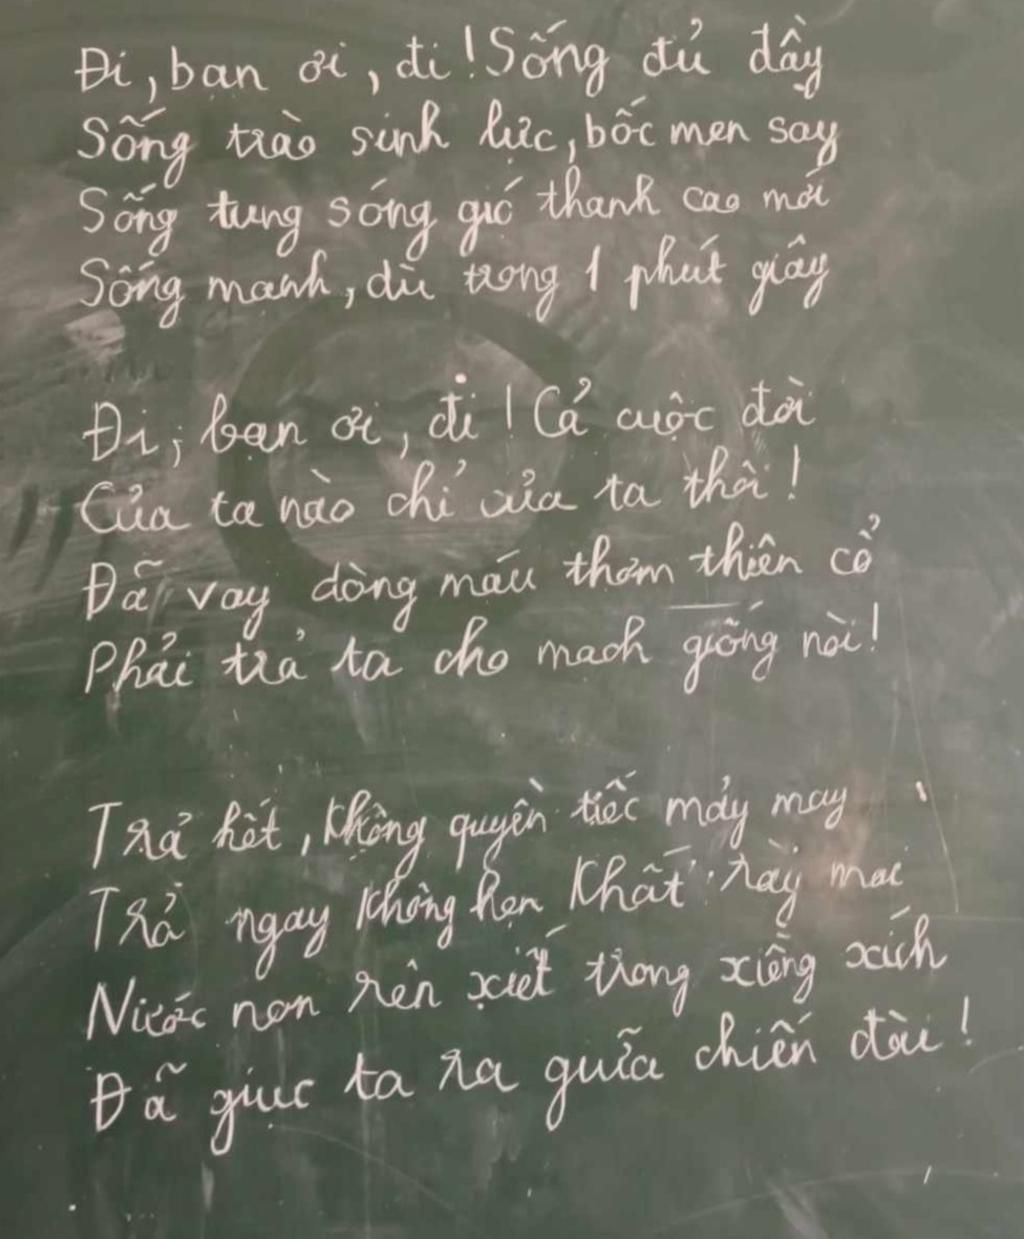 Đi, bạn ơi, đi! Sống đủ đầy
Sống trào sinh lực, bốc men say
Sống tung sóng gió thanh cao mới
Sống mạnh, dù trong 1 phút giây
Đi, bạn ơi, đi! Cả cuộc đời
Của ta nào chỉ của ta thôi!
Đã vay dòng máu thơm thiên cổ
Phải trả ta cho mạch giống nòi!
Trả hết, không quyền tiếc mảy may
Trả ngay không hẹn khất rày mai
Nước non rên xiết trong xiềng xích
Đã giục ta ra giữa chiến đài!